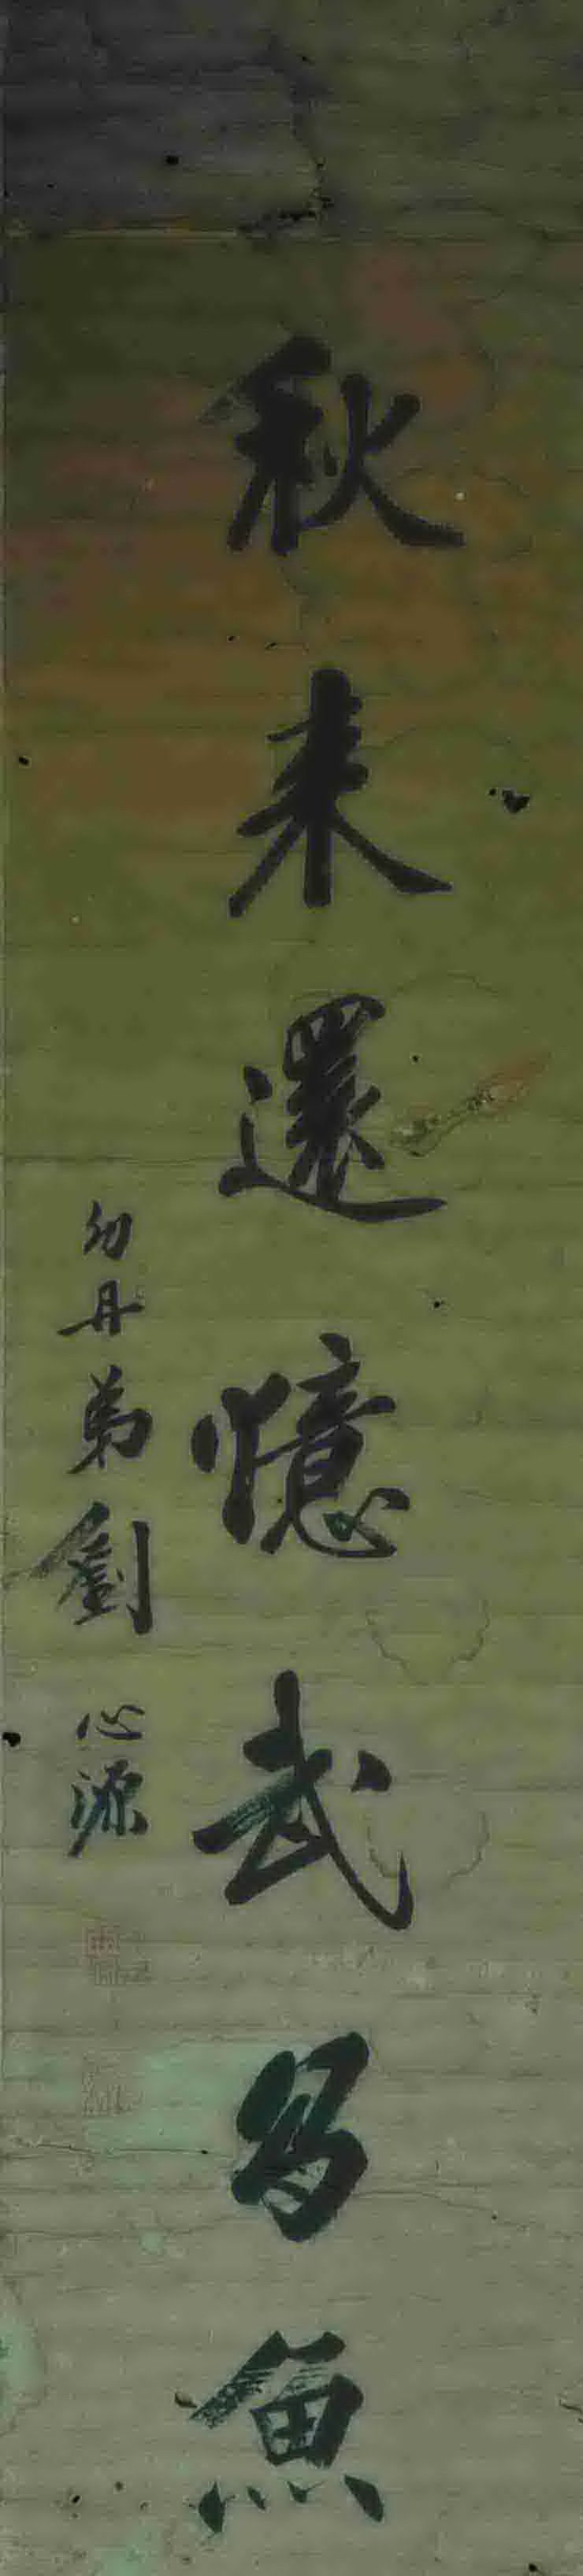 秋来還憶武昌魚
幼丹弟劉心源